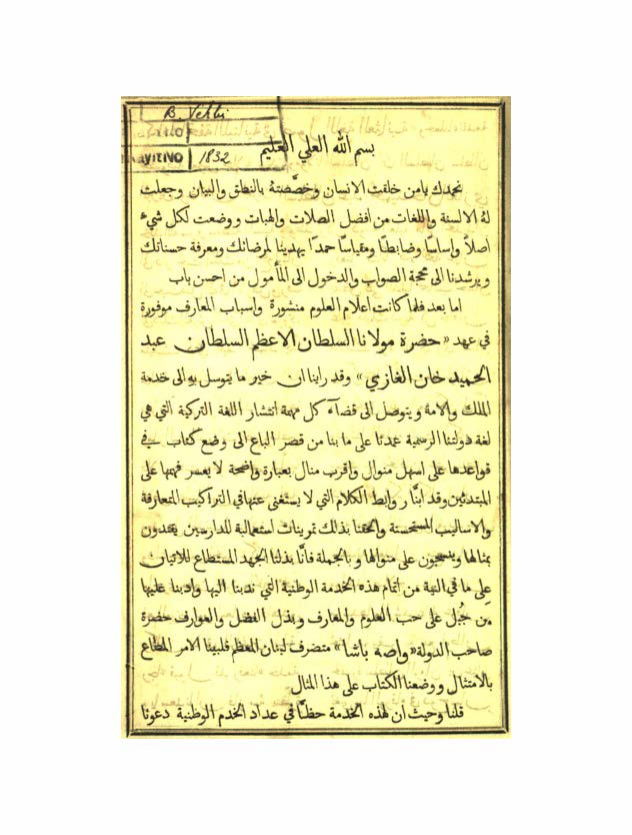 B. Vehbi
ayıt No 1832
بسم الله العلي العليم
نحمدك يامن خلقت الانسان وخصّصتهُ بالنطق والبيان وجعلت
لهُ الالسنة واللغات من افضل الصلات والهبات ووضعت لكل شيء
اصلاً واساسًا وضابطًا ومقياسًا حمدًا يهدينا لمرضاتك ومعرفة حسناتك
ويرشدنا الى محجة الصواب والدخول الى المأمول من احسن باب
اما بعد فلما كانت اعلام العلوم منشورة واسباب المعارف موفورة
في عهد «حضرة مولانا السلطان الاعظم السلطان عبد
الحميد خان الغازي» وقد راينا ان خير ما يتوسل به الى خدمة
الملك والامة ويتوصل الى قضاء كل مهمة انتشار اللغة التركية التي هي
لغة دولتنا الرسمية عمدنا على ما بنا من قصر الباع الى وضع كتاب في
قواعدها على اسهل منوال واقرب منال بعبارة واضحة لا يعسر فهمها على
المبتدئين وقد ابنّا روابط الكلام التي لا يستغنى عنها في التراكيب المتعارفة
والاساليب المستحسنة والحقنا بذلك تمرينات استعمالية للدارسين يحتذون
بمثالها وينسجون على منوالها وبالجملة فانّا بذلنا الجهد المستطاع للاتيان
على ما في النية من اتمام هذه الخدمة الوطنية التي ندبنا اليها وادبنا عليها
من جُبل على حب العلوم والمعارف وبذل الفضل والعوارف حضرة
صاحب الدولة «واصه باشا» متصرف لبنان المعظم فلبينا الامر المطاع
بالامتثال ووضعنا الكتاب على هذا المثال
قلنا وحيث ان لهذه الخدمة حظًّا في عداد الخدم الوطنية دعونا